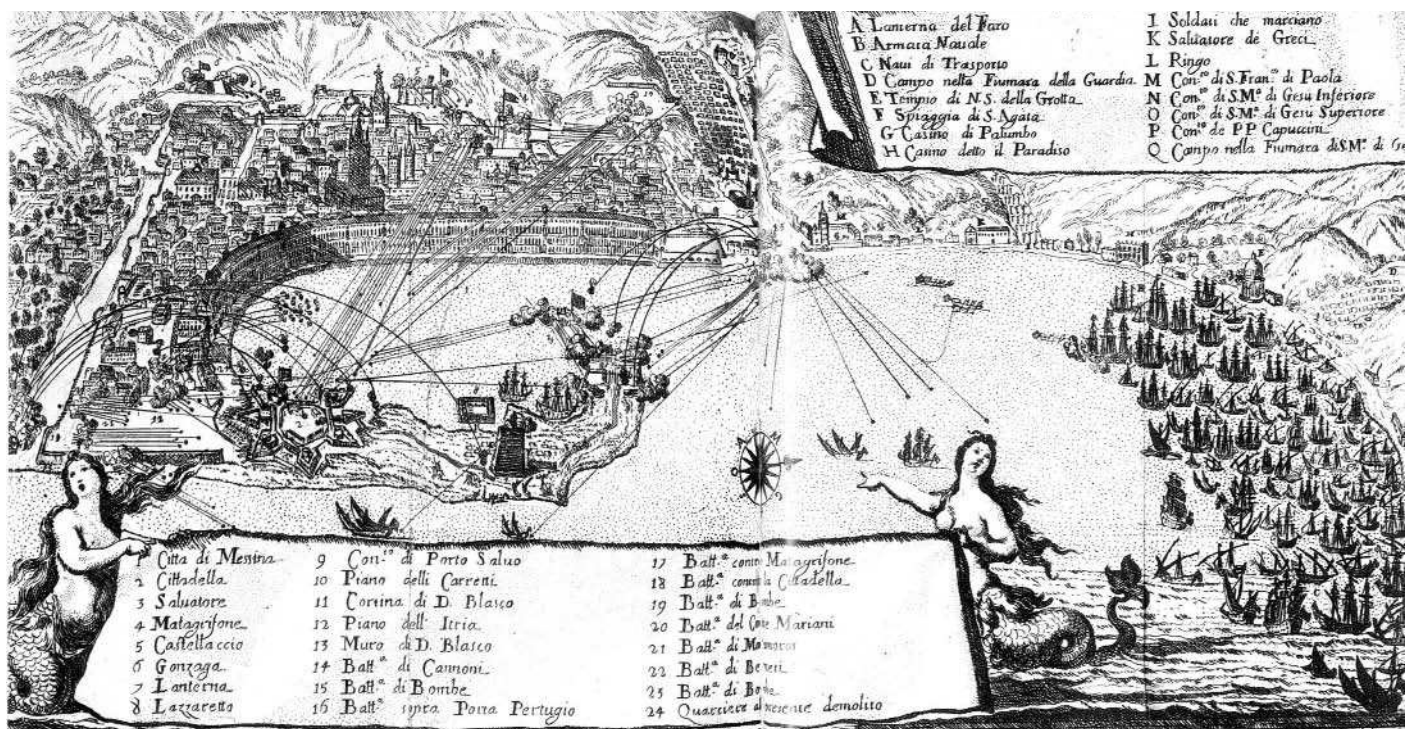 A Lanterna del Faro
B Armata Nauale
C Naui di Trasporto
D Campo nella Fiumara della Guardia
E Tempio di N.S. della Grotta
F Spiaggia di S. Agata
G Casino di Palumbo
H Casino detto il Paradiso
I Soldati che marciano
K Saluatore de Greci
L Ringo
M Con.to di S. Fran.co di Paola
N Con.to di S.M.a di Gesu Inferiore
O Con.to di S.M.a di Gesu Superiore
P Con.to de PP Capuccini
Q Campo nella Fiumara di S.M.a di
1 Citta di Messina
2 Cittadella
3 Saluatore
4 Matagrifone
5 Castellaccio
6 Gonzaga
7 Lanterna
8 Lazzaretto
9 Con.to di Porto Saluo
10 Piano delli Carreni
11 Cortina di D. Blasco
12 Piano dell' Itria
13 Muro di D. Blasco
14 Batt.a di Cannoni
15 Batt.a di Bombe
16 Batt.a sopra Porta Pertugio
17 Batt.a contro Matagrifone
18 Batt.a contro la Cittadella
19 Batt.a di Bombe
20 Batt.a del Mariani
21 Batt.a di
22 Batt.a di
23 Batt.a di
24 Quartiere al presente demolito